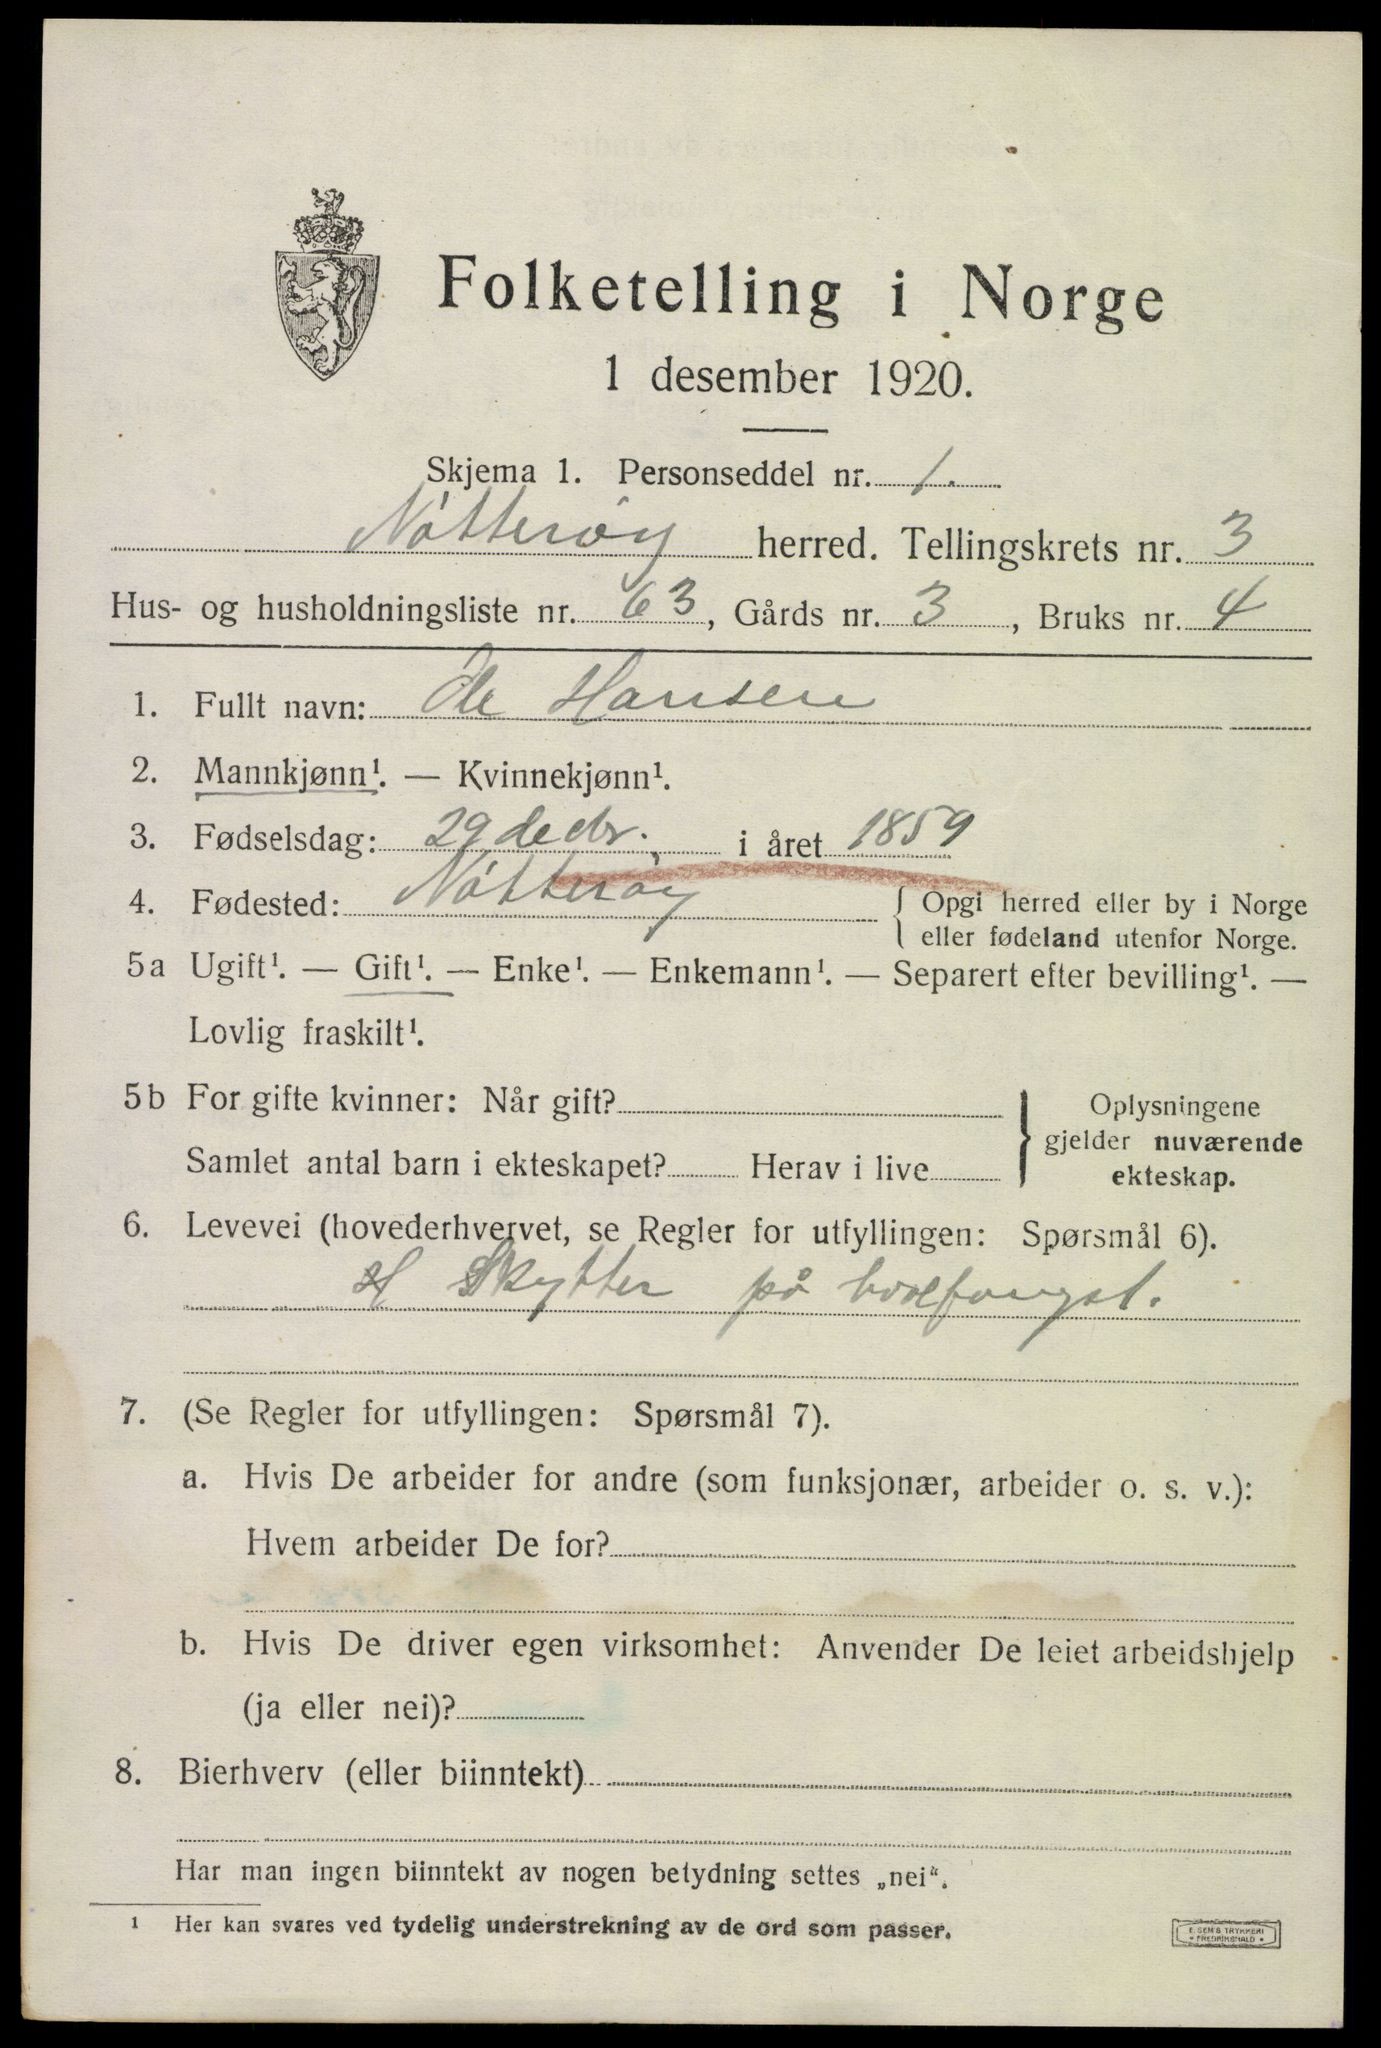 Folketelling i Norge
1 desember 1920.
Skjema 1. Personseddel nr. 1.
Nøtterøy herred. Tellingskrets nr. 3
Hus- og husholdningsliste nr. 63, Gårds nr. 3, Bruks nr. 4
1. Fullt navn: Ole Hansen
2. Mannkjønn¹. — Kvinnekjønn¹.
3. Fødselsdag: 29 decbr. i året 1859
4. Fødested: Nøtterøy { Opgi herred eller by i Norge
eller fødeland utenfor Norge.
5a Ugift¹. — Gift¹. — Enke¹. — Enkemann¹. — Separert efter bevilling¹. —
Lovlig fraskilt¹.
5b For gifte kvinner: Når gift?
Samlet antal barn i ekteskapet? Herav i live
} Oplysningene
gjelder nuværende
ekteskap.
6. Levevei (hovederhvervet, se Regler for utfyllingen: Spørsmål 6).
H Skytter på hvalfangst.
7. (Se Regler for utfyllingen: Spørsmål 7).
a. Hvis De arbeider for andre (som funksjonær, arbeider o. s. v.):
Hvem arbeider De for?
b. Hvis De driver egen virksomhet: Anvender De leiet arbeidshjelp
(ja eller nei)?
8. Bierhverv (eller biinntekt)
Har man ingen biinntekt av nogen betydning settes „nei“.
¹ Her kan svares ved tydelig understrekning av de ord som passer.
E. SEM'S TRYKKERI
FREDRIKSHALD